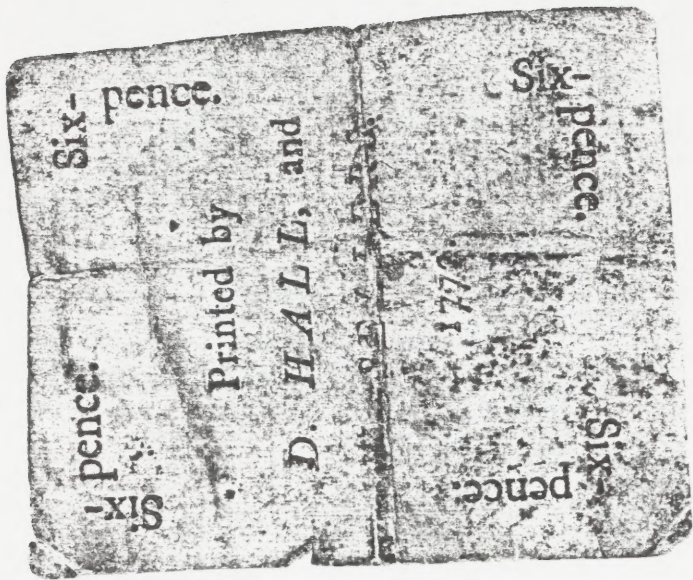 Six-pence.
Six-pence.
Printed by
D. HALL, and
Six-pence.
Six-pence.